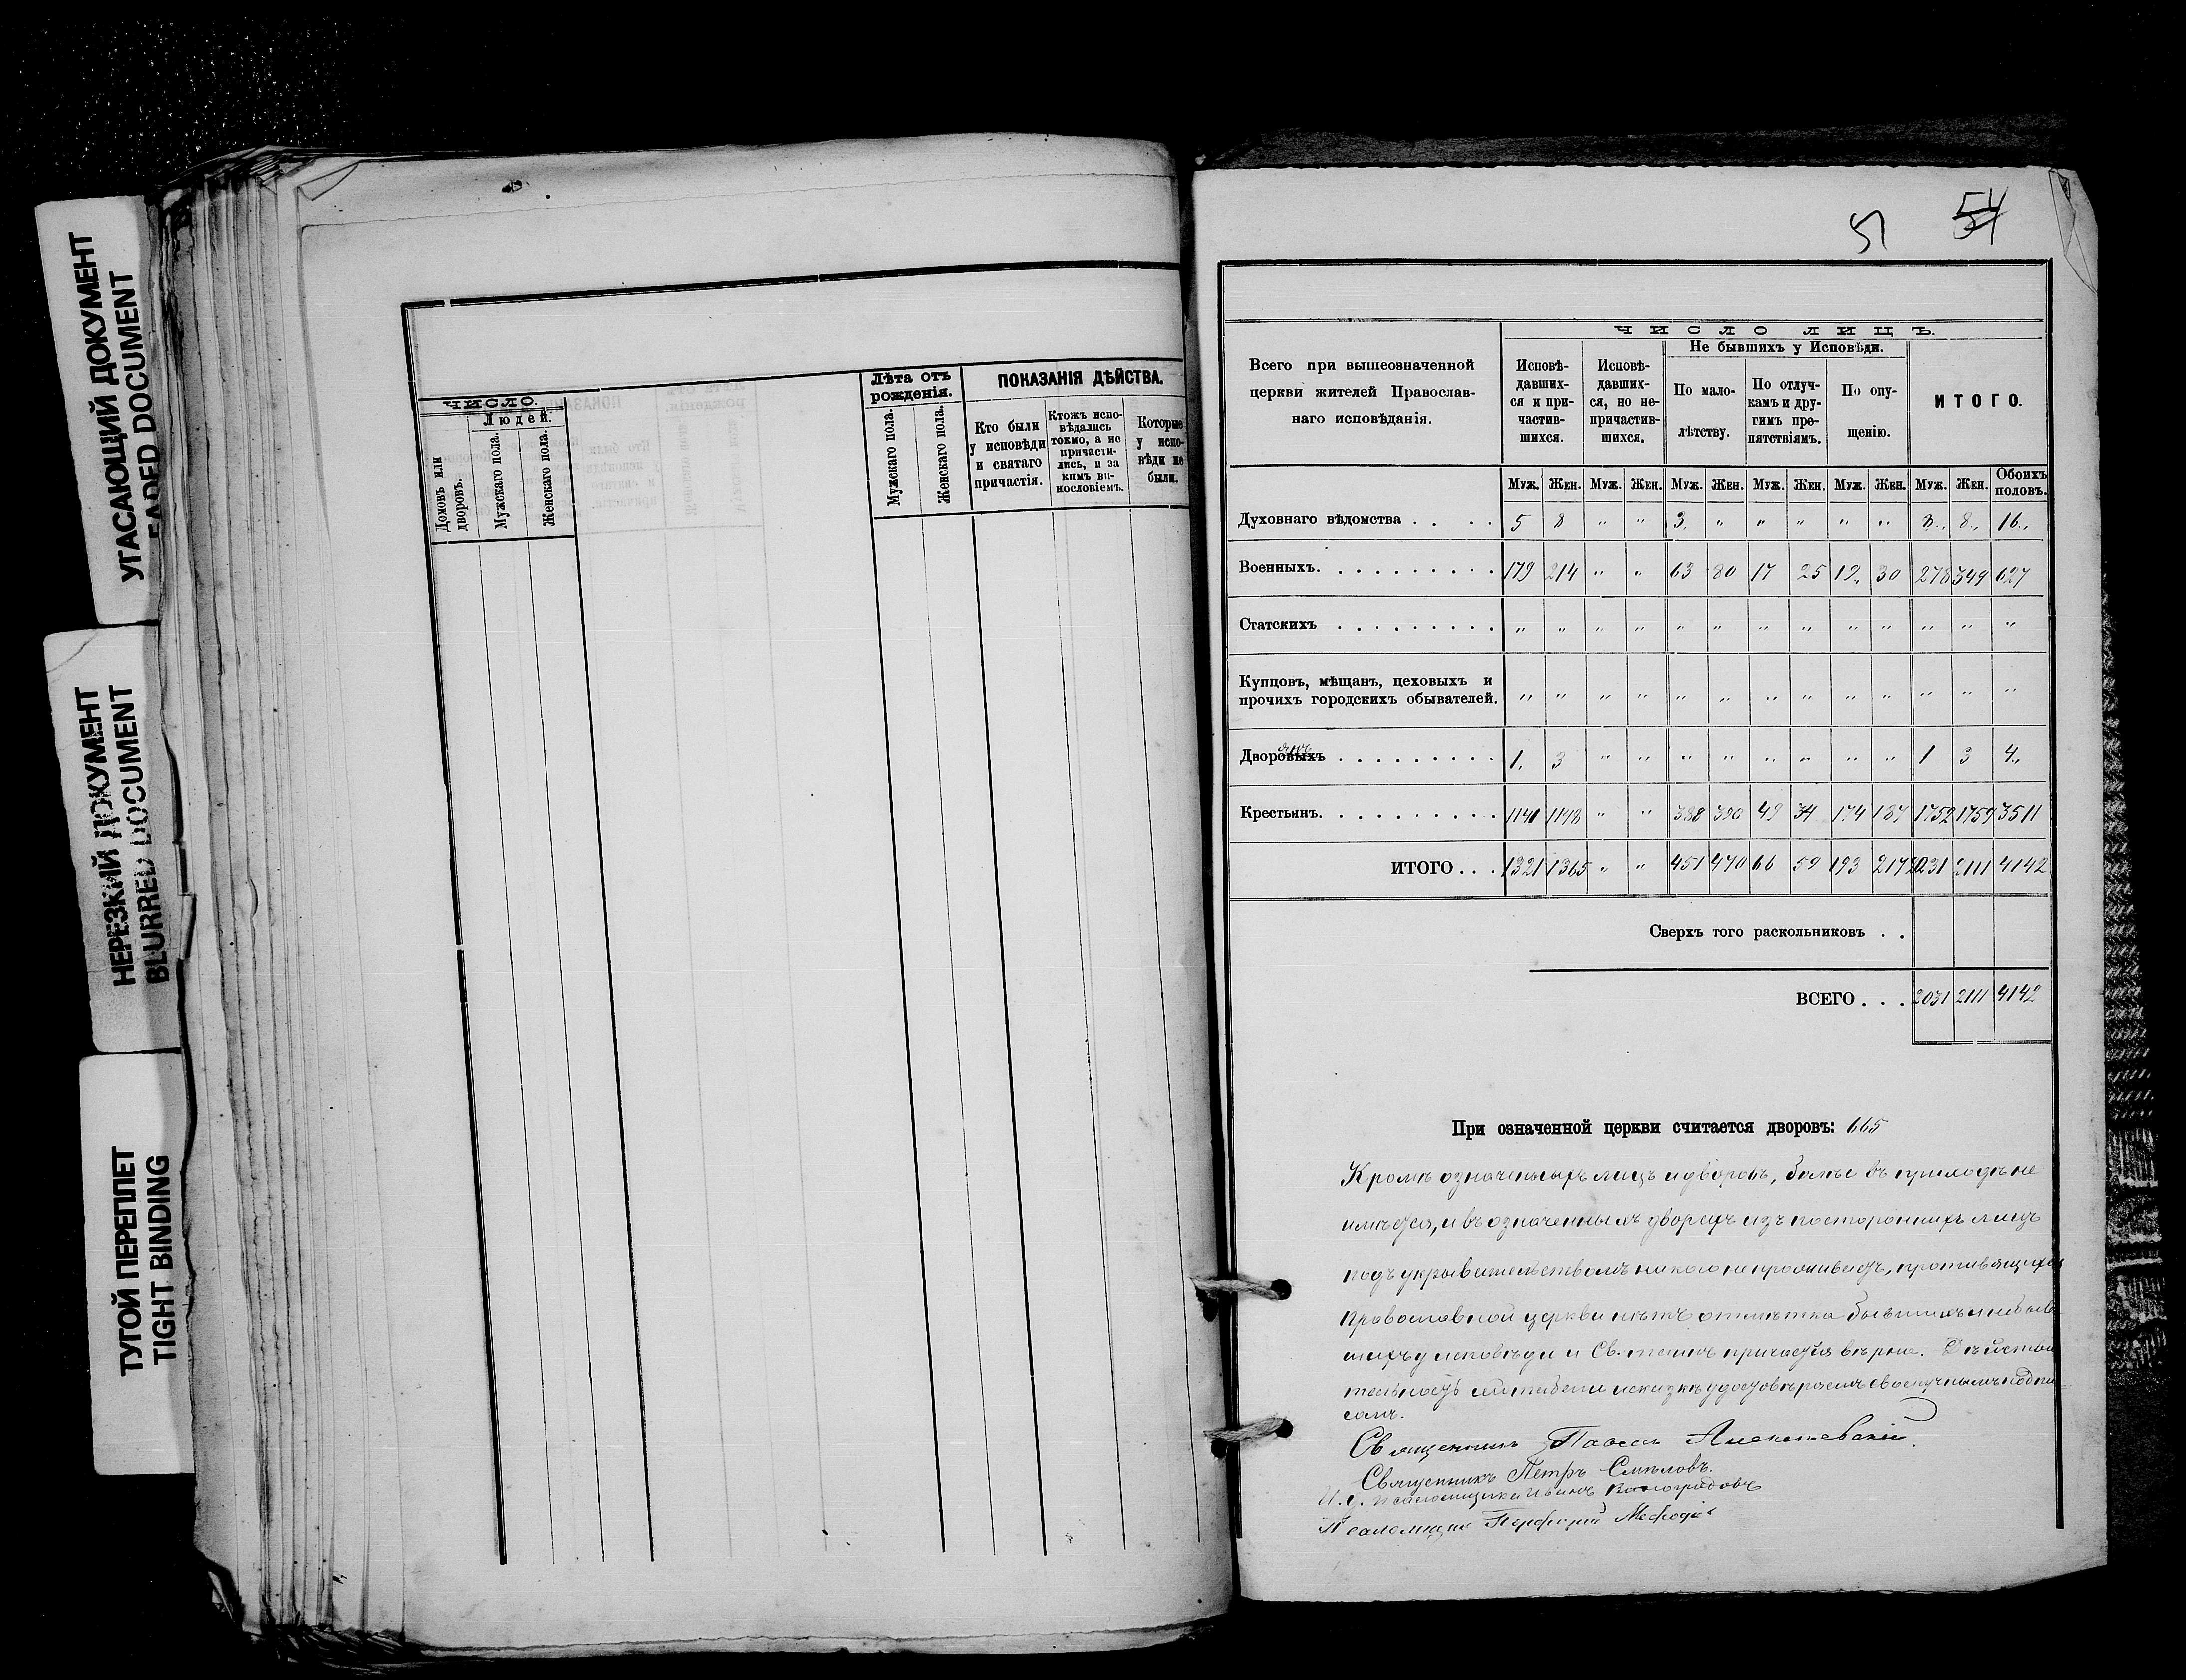 УГАСАЮЩИЙ ДОКУМЕНТ
FADED DOCUMENT
НЕРЕЗКИЙ ДОКУМЕНТ
BLURRED DOCUMENT
ТУГОЙ ПЕРЕПЛЕТ
TIGHT BINDING
ЧИСЛО.
Людей.
Домовъ или дворовъ.
Мужскаго пола.
Женскаго пола.
Лѣта отъ рожденія.
Мужскаго пола.
Женскаго пола.
ПОКАЗАНІЯ ДѢЙСТВА.
Кто были у исповѣди и святаго причастія.
Ктожъ исповѣдались токмо, а не причастились, и за кимъ винословіемъ.
Которые у исповѣди не были.
51 54
ЧИСЛО ЛИЦЪ.
Всего при вышеозначенной
церкви жителей Православ-
наго исповѣданія.
Исповѣ-
давших-
ся и при-
частив-
шихся.
Исповѣ-
давших-
ся, но не-
причастив-
шихся.
Не бывшихъ у Исповѣди.
По мало-
лѣтству.
По отлуч-
камъ и дру-
гимъ пре-
пятствіямъ.
По опу-
щенію.
ИТОГО.
Муж. Жен. Муж. Жен. Муж. Жен. Муж. Жен. Муж. Жен. Муж. Жен. Обоихъ половъ.
Духовнаго вѣдомства . . . . 5 8 " " 3. " " " " " 8., 8., 16.,
Военныхъ. . . . . . . . . . 179 214 " " 63 80 17 25 19. 30 278 349 627
Статскихъ . . . . . . . . . " " " " " " " " " " " " "
Купцовъ, мѣщанъ, цеховыхъ и
прочихъ городскихъ обывателей. " " " " " " " " " " " " "
Дворовыхъ янъ . . . . . . . . . 1. 3 " " " " " " " " 1 3 4.,
Крестьянъ. . . . . . . . . . 1141 1148 " " 388 390 49 34 174 187 1752 1759 3511
ИТОГО . . . 1321 1365 " " 451 470 66 59 193 217 2031 2111 4142
Сверхъ того раскольниковъ . .
ВСЕГО . . . 2031 2111 4142
При означенной церкви считается дворовъ: 665
Кромѣ означенныхъ лицъ и дворовъ, болѣе въ приходѣ не
имѣется, и въ означенныхъ дворахъ изъ постороннихъ лицъ
подъ укрывательствомъ никого не проживаетъ, противящихся
православной церкви нѣтъ отмѣтка бывшихъ и небыв
шихъ у исповѣди и Св. таинъ причастія вѣрна. Дѣйстви
тельность удостовѣряемъ своеручнымъ подпи-
сомъ.
Священникъ Павелъ Алексѣевскій.
Священникъ Петръ Смѣловъ.
И. д. псаломщика Иванъ Виноградовъ
Псаломщикъ Порфирій